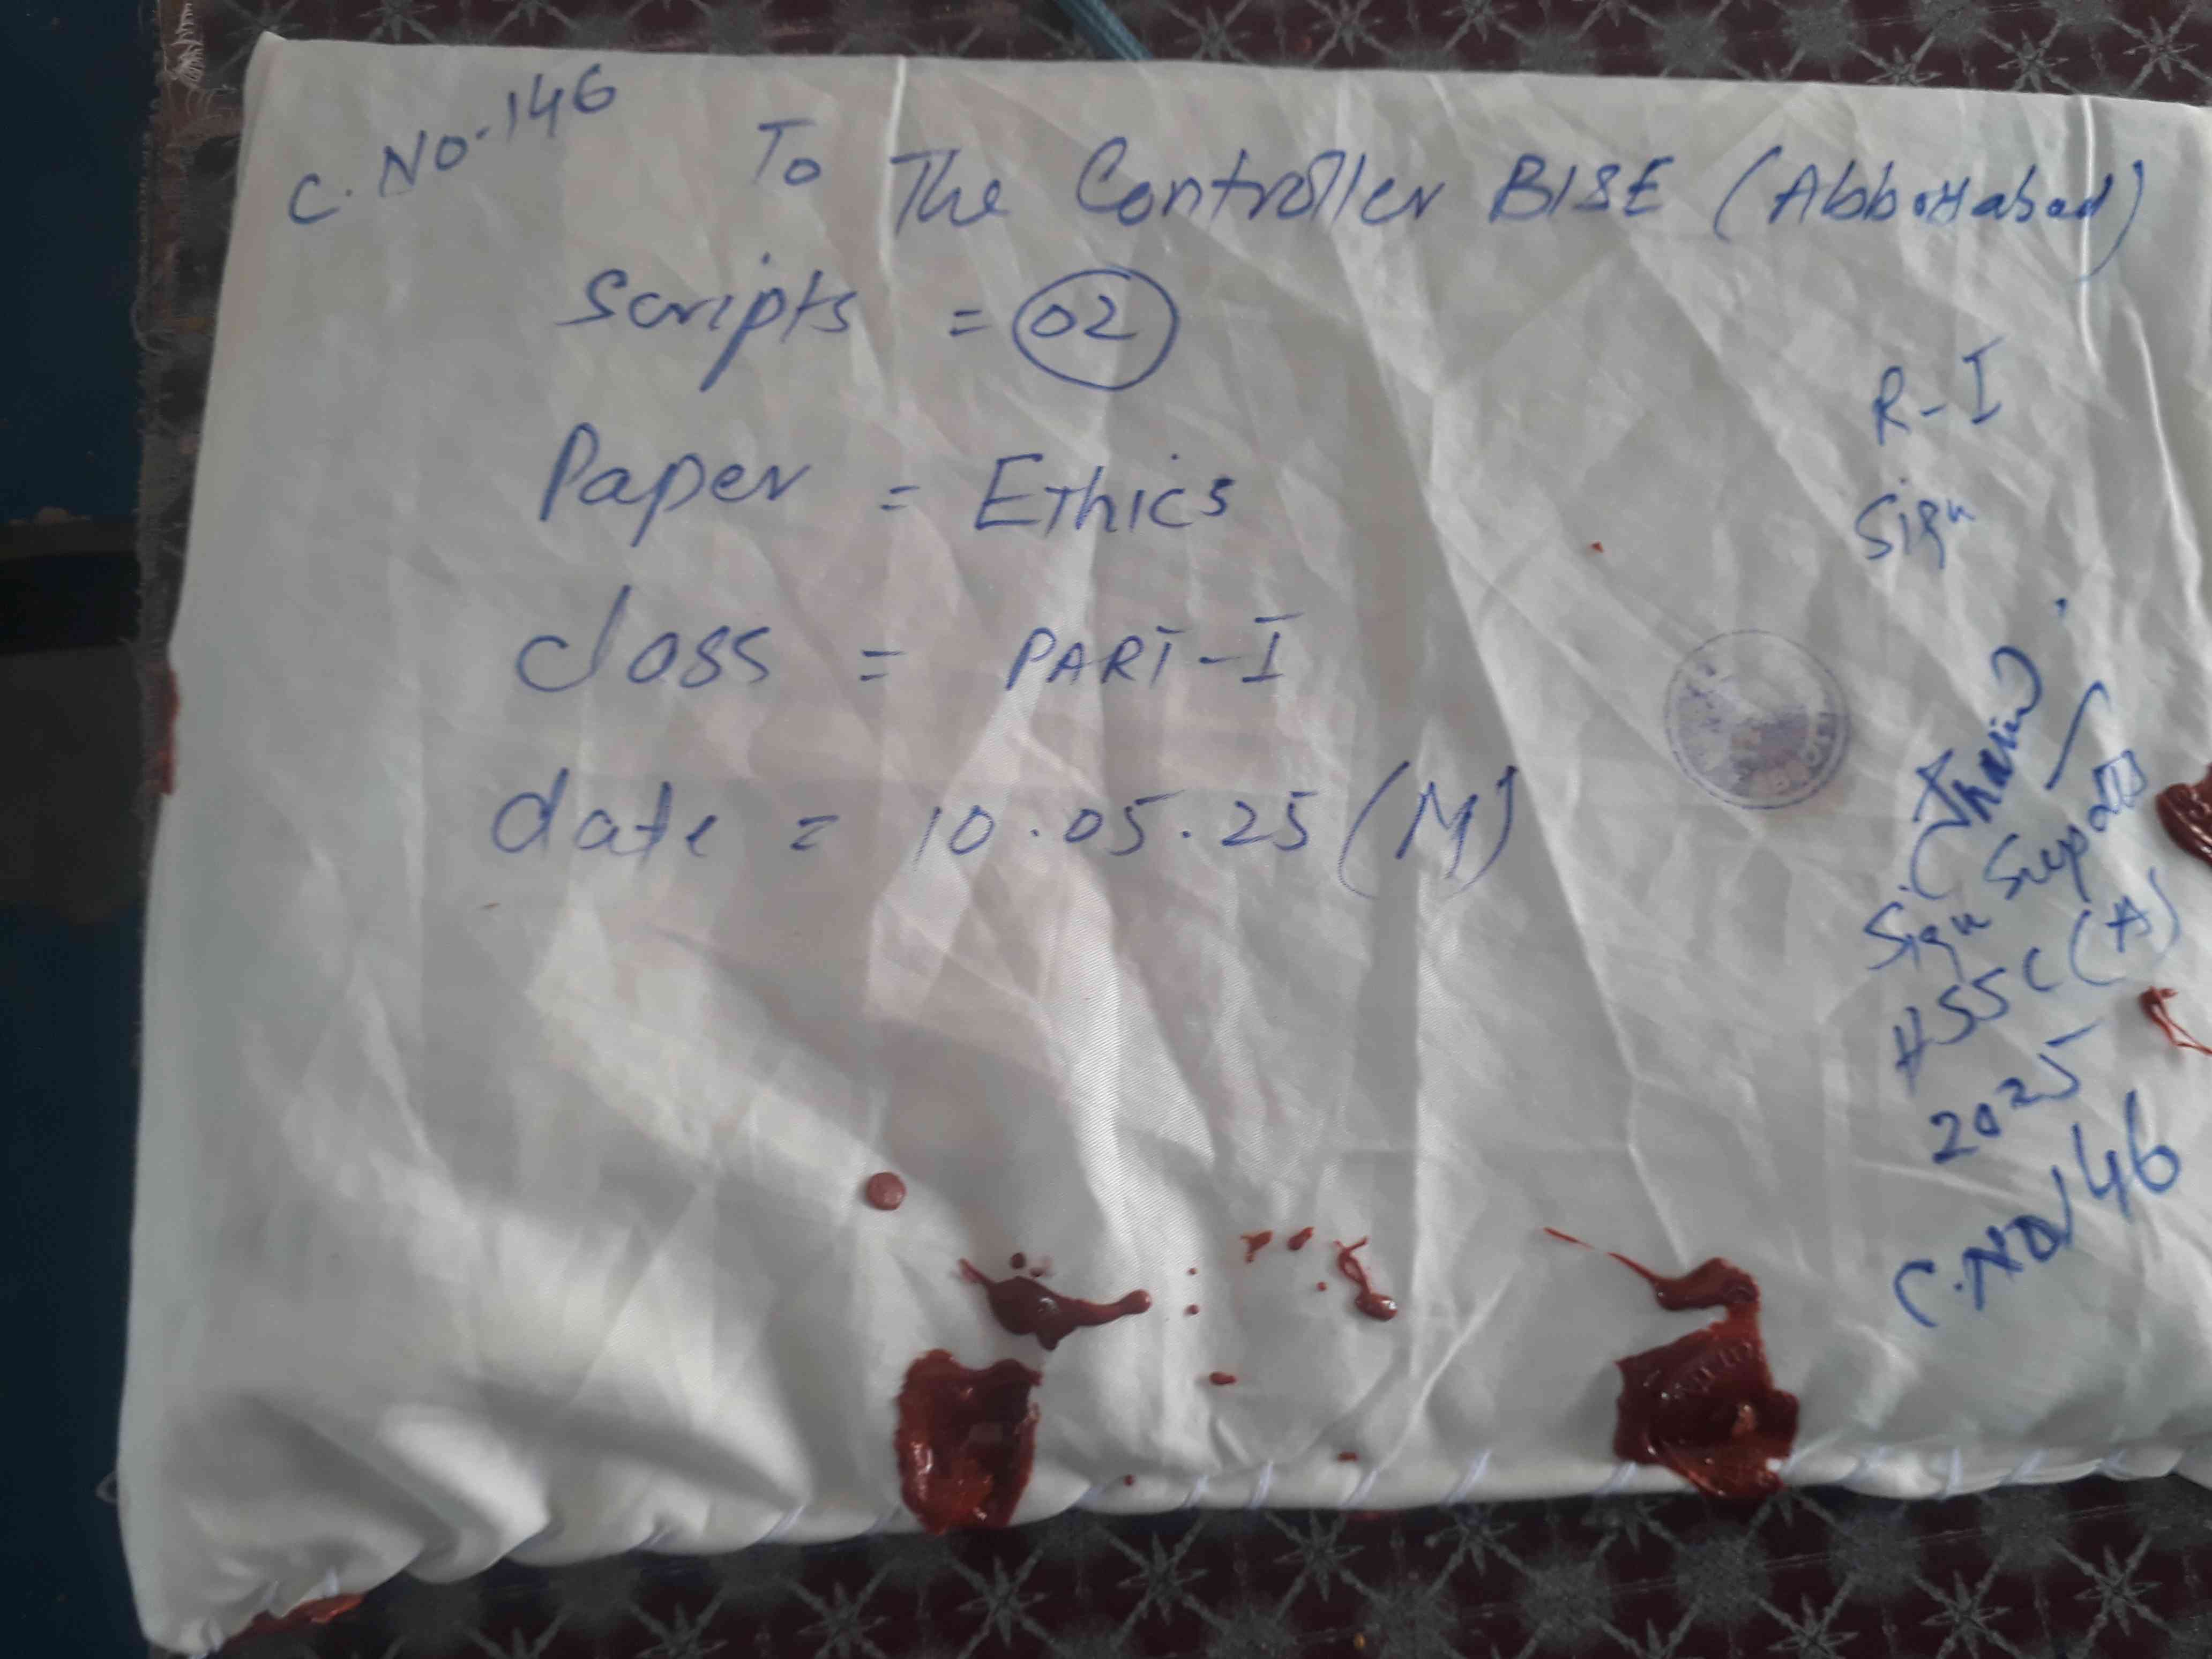 C. No. 146
To
The Controller BISE (Abbottabad)
Scripts = 02
Paper = Ethics
Class = PART-I
date = 10.05.25 (M)
R-I
Sign
Sign Supdtt
HSSC (A)
2025
C. No 146